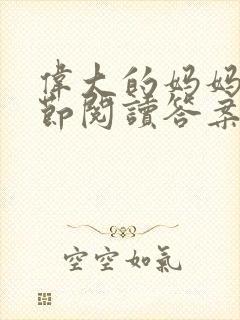 偉大的妈妈
節閱讀答案
空空如氣